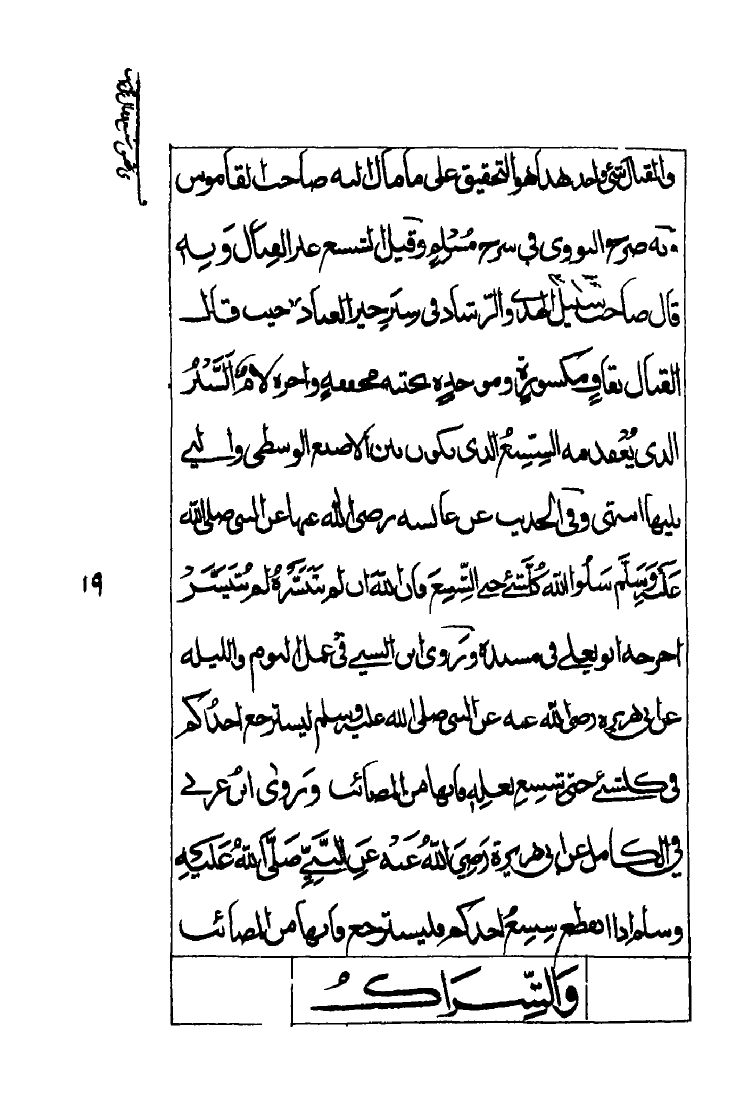 والقبال شئ واحد هذا هو التحقيق على ما مال اليه صاحب القاموس
وبه صرح النووى فى شرح مسلم وقيل الشسع غير القبال وبه
قال صاحب سبيل الهدى والرشاد فى سير خير العباد حيث قال
القبال بقاف مكسورة وموحدة تحتية مخففة واخره لام السير
الذى يعقد فيه الشسع الذى يكون بين الاصبع الوسطى والتى
يليها انتهى وفى الحديث عن عائشة رضى الله عنها عن النبى صلى الله
عليه وسلم سلوا الله كل شئ حتى الشسع فان الله ان لم ييسره لم يتيسر
اخرجه ابو يعلى فى مسنده وروى ابن السنى فى عمل اليوم والليلة
عن ابى هريرة رضى الله عنه عن النبى صلى الله عليه وسلم ليسترجع احدكم
فى كل شئ حتى شسع نعله فانها من المصائب وروى ابن عدى
فى الكامل عن ابى هريرة رضى الله عنه عن النبي صلى الله عليه
وسلم اذا انقطع شسع احدكم فليسترجع فانها من المصائب
والشراك
١٩